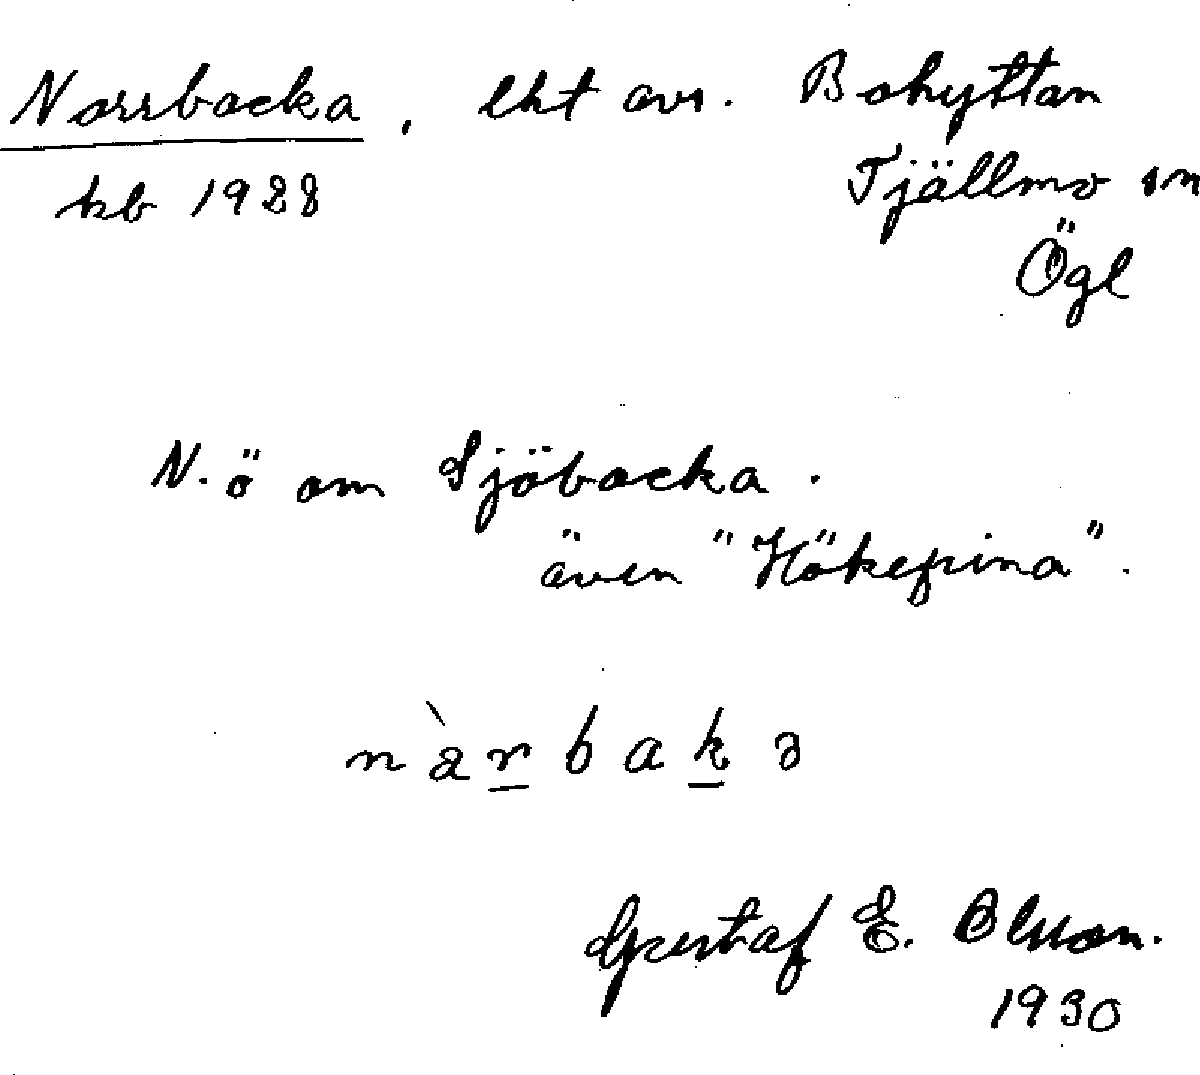 Norrbacka, lht avs. Bohyttan
kb 1928 Tjällmo sn
Ögl
N.ö om Sjöbacka.
även "Hökepina".
nàrbakə
Gustaf E. Olsson.
1930